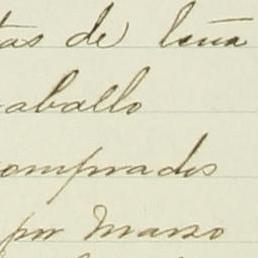 tas de leña
aballo
omprados
por Marzo